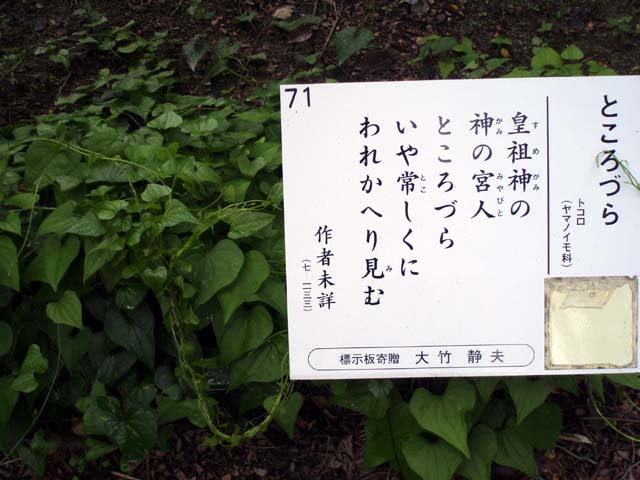 71
ところづら
トコロ
(ヤマノイモ科)
皇祖神の
すめ かみ
神の宮人
かみ みやびと
ところづら
いや常しくに
とこ
われかへり見む
み
作者未詳
(七 一一三三)
標示板寄贈 大竹 静夫